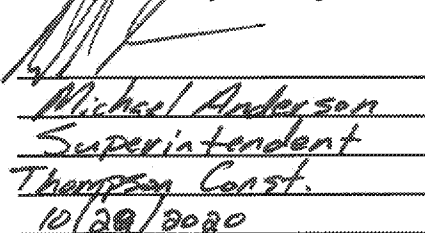 Michael Anderson
Superintendent
Thompson Const.
10/28/2020